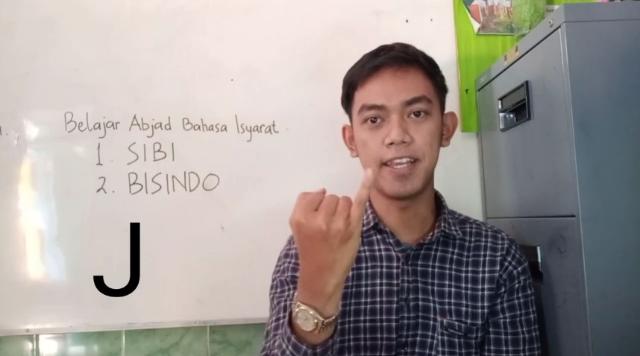 Belajar Abjad Bahasa Isyarat.
1. SIBI
2. BISINDO
J